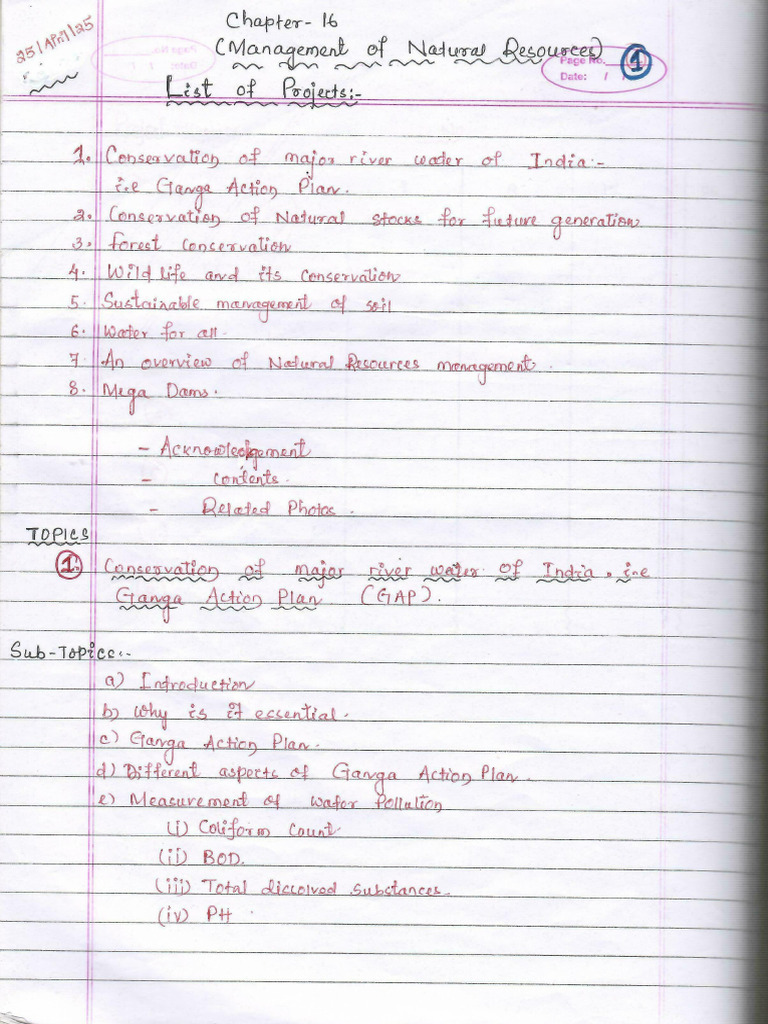 25/April/25
Chapter-16
(Management of Natural Resources)
Page No. 1
Date: / /
List of Projects:-
1. Conservation of major river water of India:-
i.e Ganga Action Plan.
2. Conservation of Natural stocks for future generation
3. Forest conservation
4. Wild life and its conservation
5. Sustainable management of soil
6. Water for all.
7. An overview of Natural Resources management.
8. Mega Dams.
- Acknowledgement
- Contents.
- Related Photos.
TOPICS
1. Conservation of major river water of India, i.e
Ganga Action Plan (GAP).
Sub-Topics:-
a) Introduction
b) Why is it essential.
c) Ganga Action Plan.
d) Different aspects of Ganga Action Plan.
e) Measurement of water Pollution
(i) Coliform Count
(ii) BOD.
(iii) Total dissolved substances.
(iv) PH.